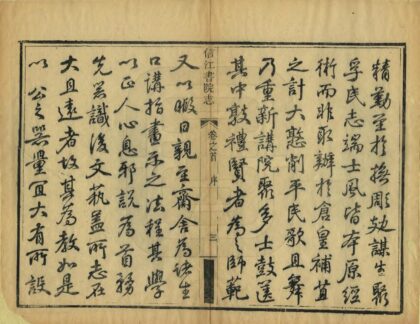 精勤至於撫彫攰謀生聚
孚民志端士風皆本原經
術而非取辦於倉皇補苴
之計大憝削平民歌且舞
乃重新講院聚多士鼓篋
其中敦禮賢者為之師範
信江書院志
卷之首 序 三
又以暇日親至齋舍為諸生
口講指畫示之法程其學
以正人心息邪說為首務
先器識後文藝蓋所志在
大且遠者故其為教如是
以公之器量宜大有所設